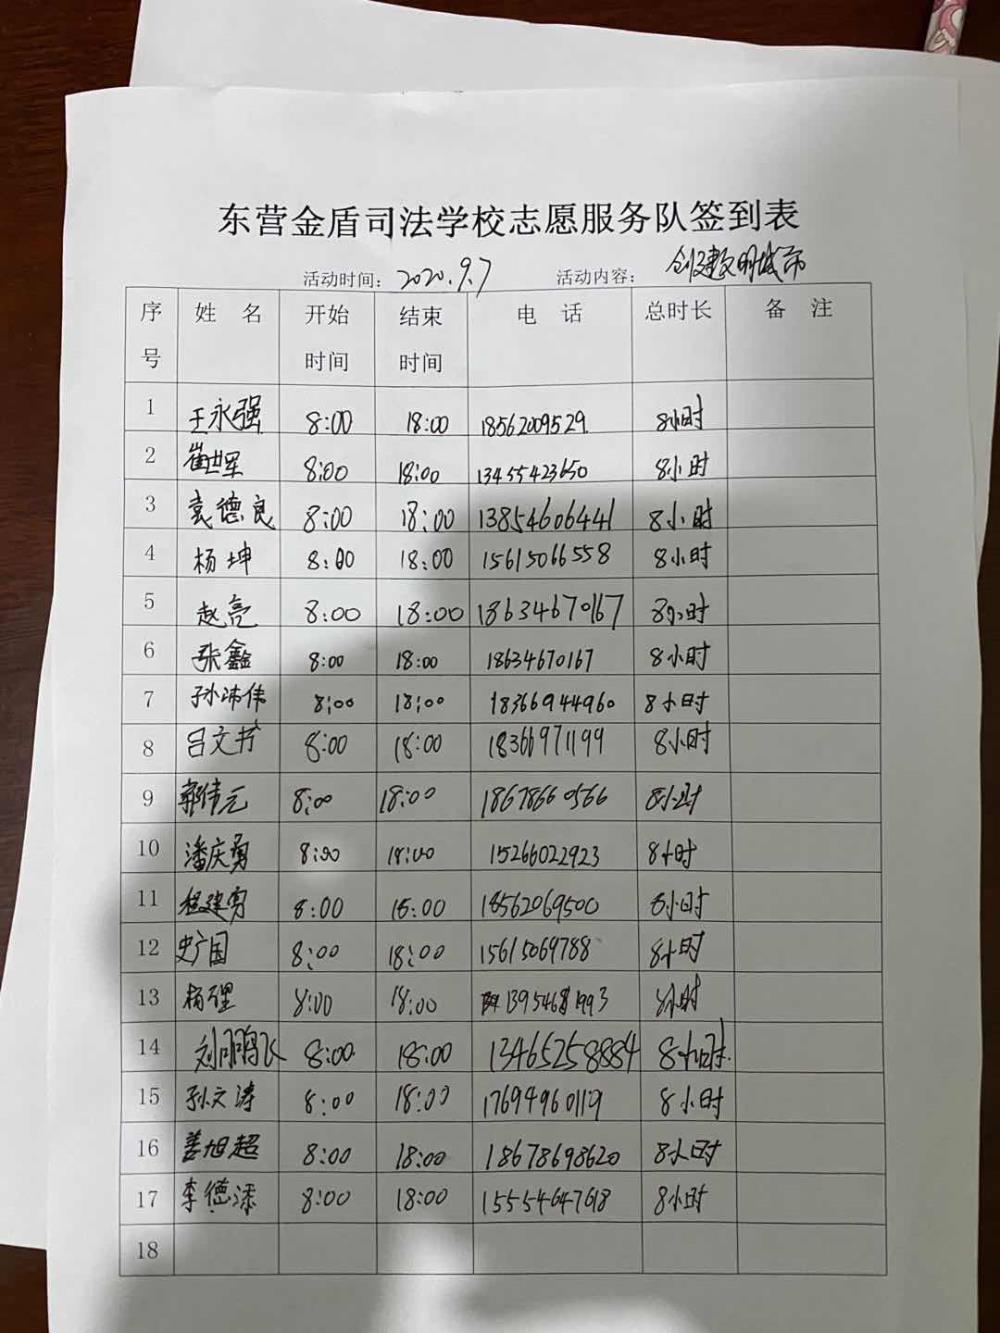 东营金盾司法学校志愿服务队签到表
活动时间：2020.9.7 活动内容：创建文明城市
序号 姓 名 开始时间 结束时间 电 话 总时长 备 注
1 王永强 8:00 18:00 18562009529 8小时
2 崔世军 8:00 18:00 13455423650 8小时
3 袁德良 8:00 18:00 13854606441 8小时
4 杨坤 8:00 18:00 15615066558 8小时
5 赵亮 8:00 18:00 18634670167 8小时
6 张鑫 8:00 18:00 18634670167 8小时
7 孙沛伟 8:00 18:00 18366944960 8小时
8 吕文书 8:00 18:00 18366971199 8小时
9 郭伟元 8:00 18:00 18678660566 8小时
10 潘庆勇 8:00 18:00 15266022923 8小时
11 程建勇 8:00 18:00 18562069500 8小时
12 史广国 8:00 18:00 15615069788 8小时
13 杨理 8:00 18:00 13954681993 8小时
14 刘鹏飞 8:00 18:00 13465258884 8小时
15 孙文涛 8:00 18:00 17694960119 8小时
16 姜旭超 8:00 18:00 18678698620 8小时
17 李德添 8:00 18:00 15554647618 8小时
18